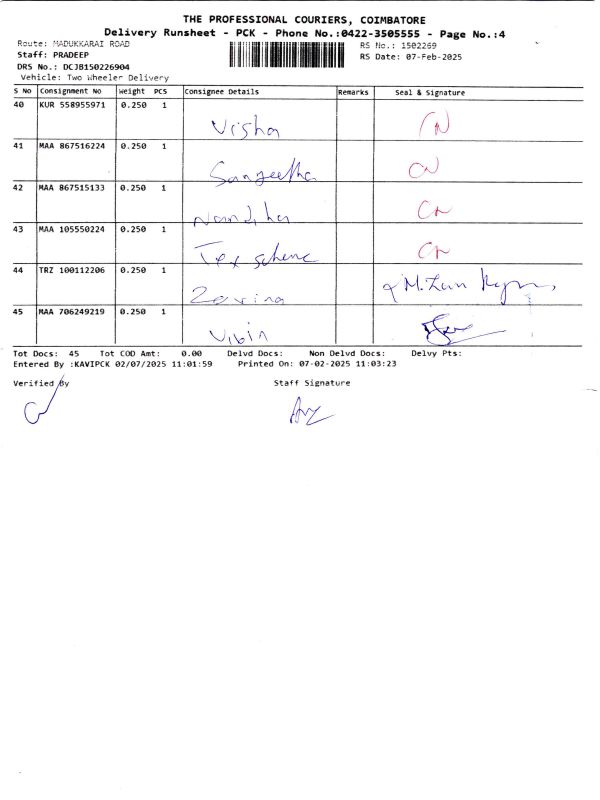 THE PROFESSIONAL COURIERS, COIMBATORE
Delivery Runsheet - PCK - Phone No.:0422-3505555 - Page No.:4
Route: MADUKKARAI ROAD
RS No.: 1502269
Staff: PRADEEP
RS Date: 07-Feb-2025
DRS No.: DCJB150226904
Vehicle: Two Wheeler Delivery
S No Consignment No Weight PCS Consignee Details Remarks Seal & Signature
40 KUR 558955971 0.250 1 Visha
41 MAA 867516224 0.250 1 Sangeetha
42 MAA 867515133 0.250 1 Nandiha
43 MAA 105550224 1 0.250 1 Tex scheme
44 TRZ 100112206 0.250 1 Zorina
45 MAA 706249219 0.250 1 Vibin
Tot Docs: 45 Tot COD Amt: 0.00 Delvd Docs: Non Delvd Docs: Delvy Pts:
Entered By :KAVIPCK 02/07/2025 11:01:59 Printed On: 07-02-2025 11:03:23
Verified By Staff Signature